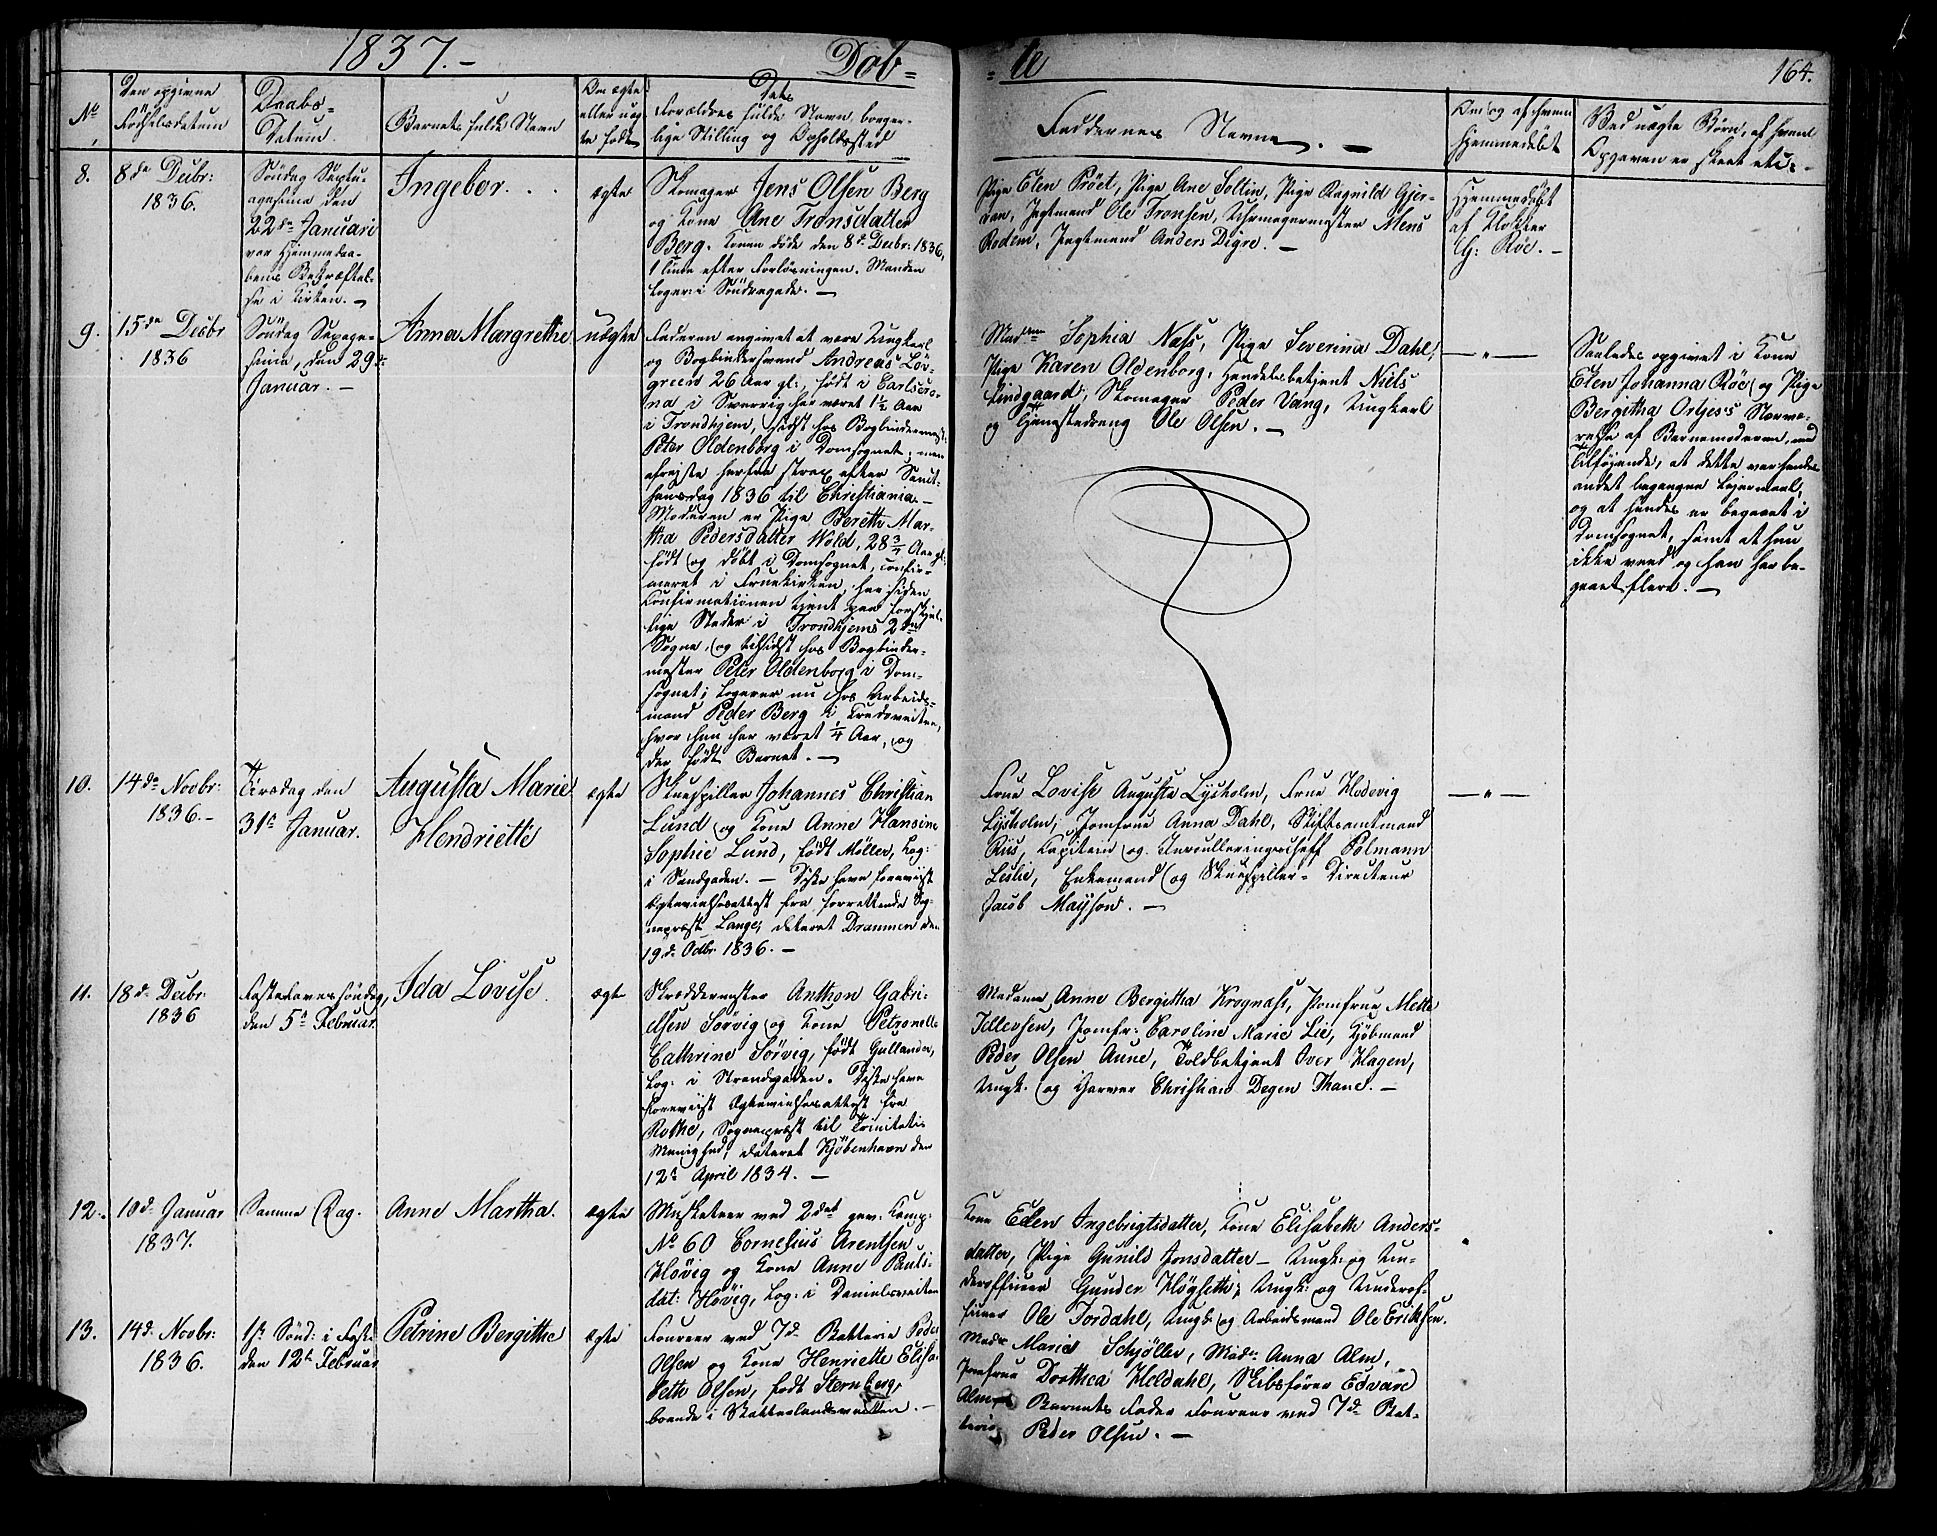 1837.- Døb= =te 164.
No
Den opgivne
Fødselsdatum
Daabs-
Datum.
Barnets fulde Navn
Om ægte
eller uæg
te født
Dets
Forældres fulde Navn, borger-
lige Stilling og Opholdssted
Faddernes Navne. -
Om og af hvem
hjemmedøbt
Ved uægte Børn, af hvem
Opgaven er skeet etc: -
8.
8de Decbr:
1836.
Søndag Septu-
agesima den
22de Januari
var Hjemmedaa-
bens Bekræftel-
se i Kirken. -
Ingebor. . .
ægte
Skomager Jens Olsen Berg
og Kone Ane Tronsdatter
Berg. Konen døde den 8d. Decbr: 1836,
1 Time efter Forløsningen. Manden
logerer i Søndregade. -
Pige Elen Prøet, Pige Ane Soltin, Pige Ragnild Gjer-
van, Jagtmand Ole Tronsen, Uhrmagermester Mens
Rodem, Jagtmand Anders Digre. -
Hjemmedøbt
af Klokker
G: Röe. -
9.
15de Decbr
1836
Søndag Sexage-
sima, den 29de
Januar. -
Anna Margrethe
uægte
Faderen angivet at være Ungkarl
og Bogbindersvend Andreas Löv-
green 26 Aar gl:, født i Carlscro-
na i Sverrig har været 1½ Aar
i Trondhjem, sidst hos Bogbindermest:
Peter Oldenborg i Domsognet, men
afreiste herfra strax efter Sanct-
hansdag 1836 til Christiania. -
Moderen er Pige Bereth Mar-
tha Pedersdatter Wold, 28¾ Aar gl:
født og døbt i Domsognet, confir-
meret i Fruekirken, har siden
Confirmationen tjent paa forskjel-
lige Steder i Trondhjems 2de
Sogne, og tilsidst hos Bogbinder-
mester Peter Oldenborg i Dom-
sognet; logerer nu hos Arbeids-
mand Peder Berg i
hvor hun har været ¼ Aar, og
der født Barnet. -
Madme Sophia Näss, Pige Severina Dahl,
Pige Karen Oldenborg, Handelsbetjent Niels
Lindgaard, Skomager Peder Vang, Ungkarl
og Tjenestedreng Ole Olsen. -
- " -
Saaledes opgivet i Kone
Elen Johanna Röe og Pige
Bergitha Ortjes's Nærvæ-
relse af Barnemoderen, med
Tilføjende, at dette var hendes
andet begangne Leiermaal,
og at hendes er begaaet i
Domsognet, samt at hun
ikke veed og han har be-
gaaet flere. -
10.
14de Novbr:
1836.-
Tirsdag den
31te Januar.
Augusta Marie
Hendriette
ægte
Skuespiller Johannes Christian
Lund og Kone Anne Hansine
Sophie Lund, født Møller, Log:
i Sandgaden. - Disse have foreviist
Ægtevielsesattest fra forrettende Sog-
nepræst Lange, dateret Drammen den
19d. Octbr 1836. -
Frue Lovise Augusta Lysholm, Frue Hedevig
Lysholm, Jomfrue Anna Dahl, Stiftsamtmand
Riis, Capitein og Inroulleringschef Polmann
Leslie, Enkemand og Skuespiller-Directeur
Jacob Mayson. -
- " -
11.
18d. Decbr:
1836
Fastelavnssøndag,
den 5te Februar
Ida Lovise.
ægte
Skræddermester Anthon Gabri-
elsen Sørvig og Kone Petronelle
Cathrine Sørvig, født Gullander,
Log: i Strandgaden. Disse have
foreviist Ægtevielsesattest fra
Rothe, Sognepræst til Trinitatis
Menighed, dateret Kjøbenhavn den
12te April 1834. -
Madame Anne Bergitha Krognäss, Jomfrue Mette
Tellevsen, Jomfr: Caroline Marie Lie, Kjøbmand
Peder Olsen Aune, Toldbetjent Iver Hagen,
Ungk. og Garver Christian Degen Thane. -
12.
10d. Januar
1837.
Samme Dag.
Anne Martha.
ægte
Musketeer ved 2det gev: Comp:
No 60 Cornelius Arentsen
Høvig og Kone Anne Pauls-
dat: Høvig, Log: i Danielsveiten
Kone Elen Ingebrigtsdatter, Kone Elisabeth Anders-
datter, Pige Gunild Jonsdatter - Ungk: og Un-
derofficeer Gunder Høgseth, Ungk: og Underof-
ficeer Ole Tordahl, Ungk: og Arbeidsmand Ole Eriksen.
13.
14d. Novbr:
1836.
1ste Sønd: i Faste
den 12te Februar
Petrine Bergitthe
ægte
Foureer ved 7d. Batterie Peder
Olsen og Kone Henriette Elisa-
beth Olsen, født Sternberg,
boende i
Made Marie Schjøller, Made Anna Alm,
Jomfrue Dorthea Heldahl, Skibsfører Edvard
Alm, Barnets Fader Foureer ved 7d. Bat-
terie Peder Olsen. -